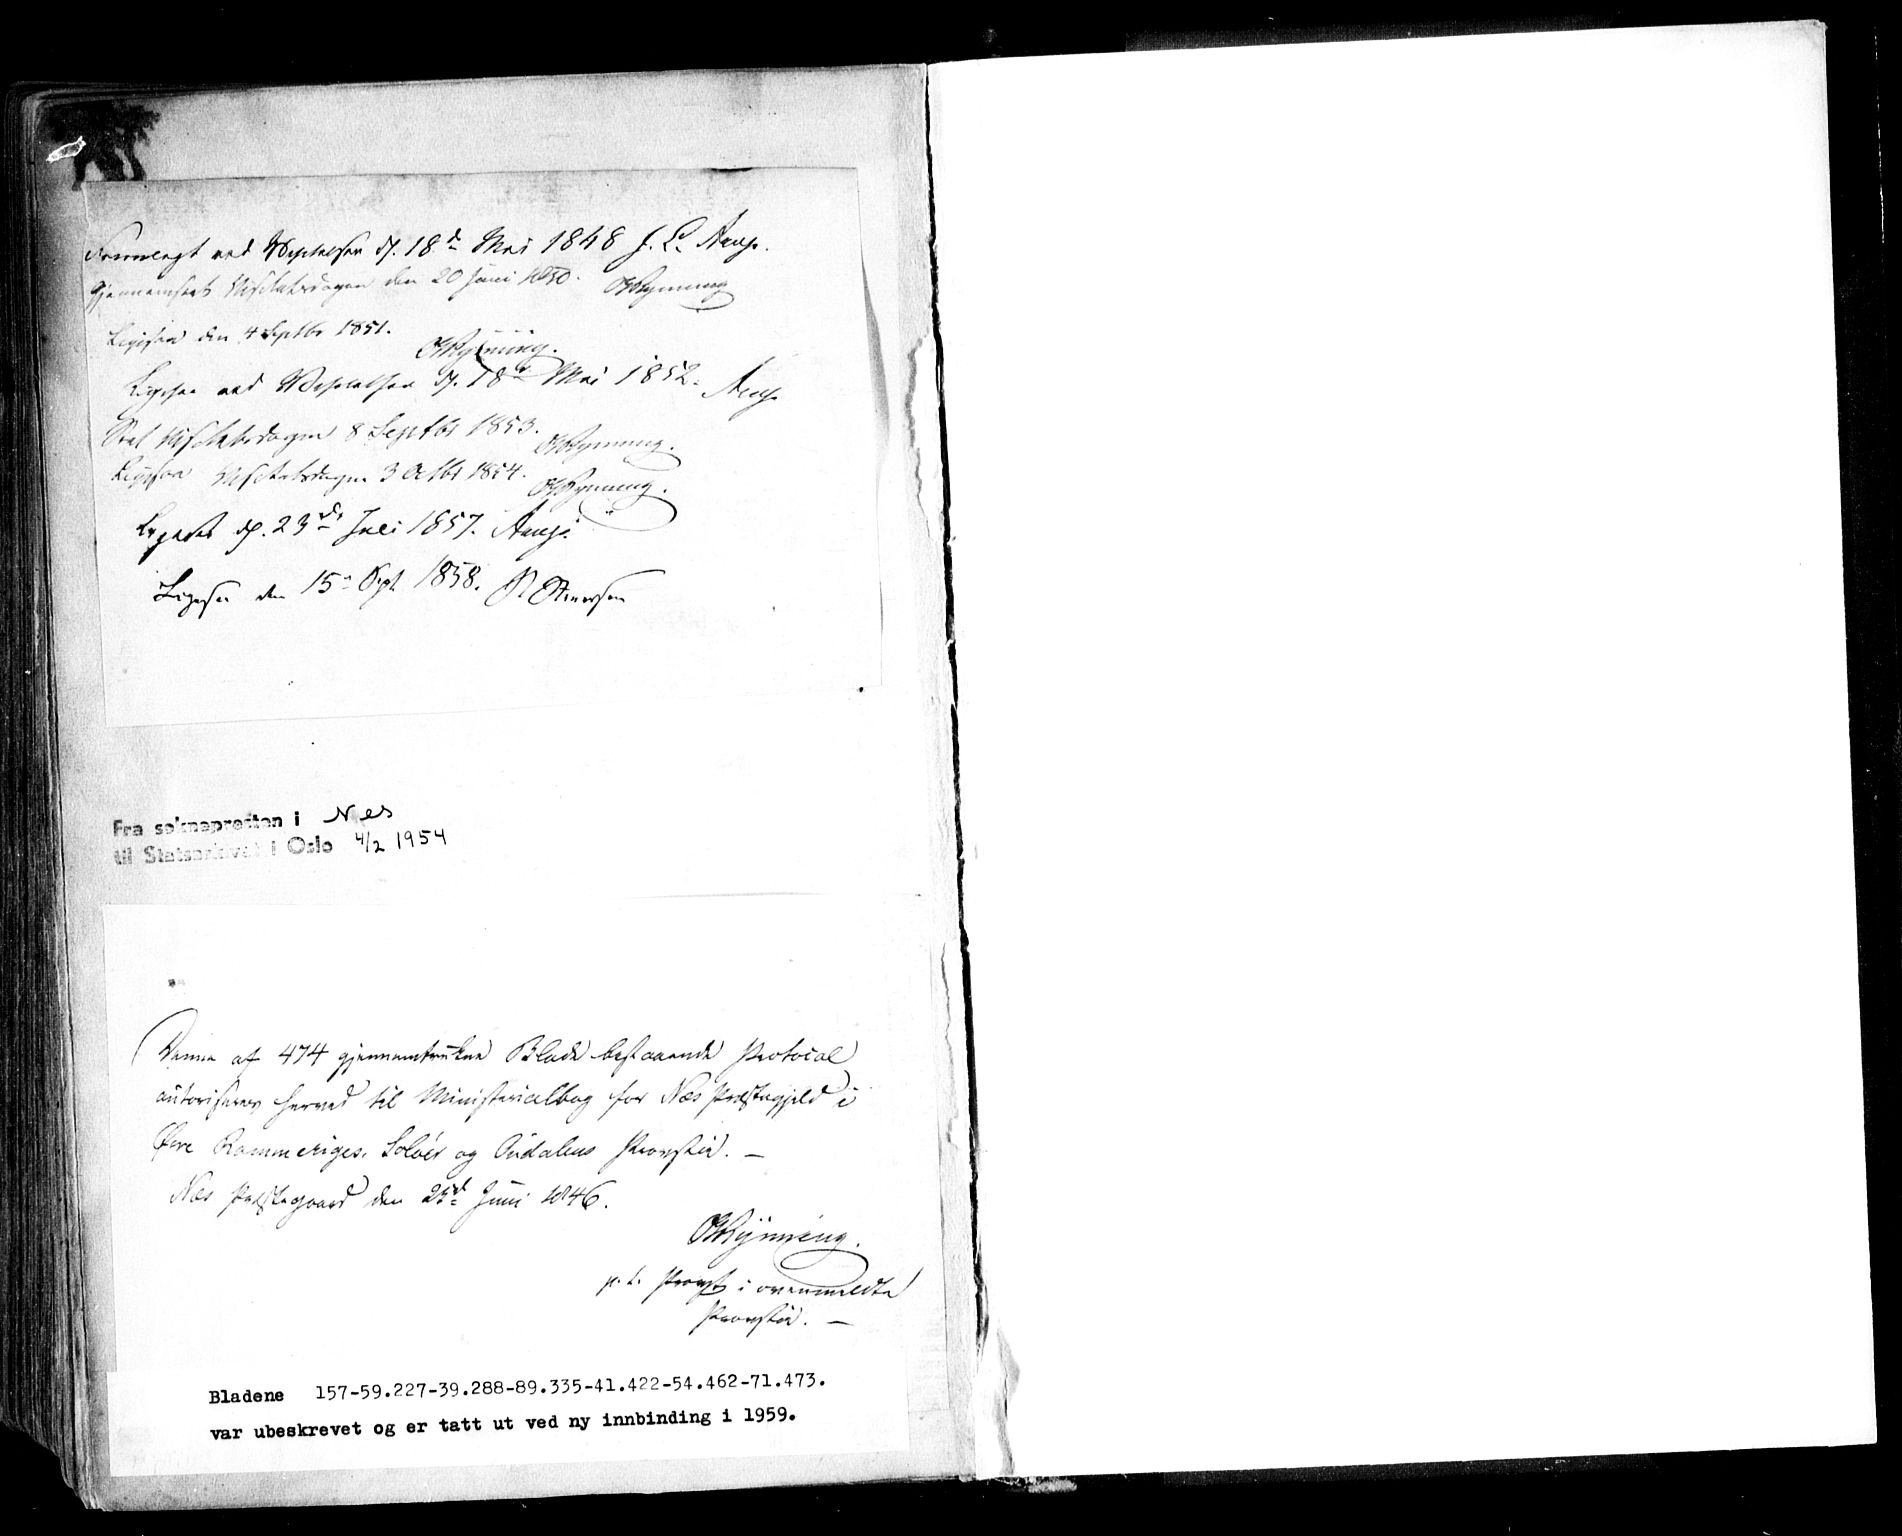 Fremlagt ved Visitatsen d. 18d Mai 1848 J. L. Arup.
Gjennemseet Visitatsdagen den 20 Juni 1850. OWRynning
Ligesaa den 4 Septbr 1851.
OWRynning.
Ligesaa ved Visitatsen d. 18d Mai 1852. Arup
Seet Visitatsdagen 8 Septbr 1853. OWRynning.
Ligesaa Visitatsdagen 3 Octbr 1854. OWRynning.
d. 23de Juli 1857. Arup.
Ligesaa den 15de Sept 1858.
Fra soknepresten i Nes
til Statsarkivet i Oslo 4/2 1954
Denne af 474 gjennemtrukne Blade bestaaende Protocol
autoriseres herved til Ministerialbog for Næs Præstegjeld i
Øvre Rommeriges, Soløer og Oudalens Provstie. —
Næs Præstegaard den 25d Juni 1846.
OWRynning.
p. t. Provst i ovenmeldte
Provstie. —
Bladene 157-59.227-39.288-89.335-41.422-54.462-71.473.
var ubeskrevet og er tatt ut ved ny innbinding i 1959.